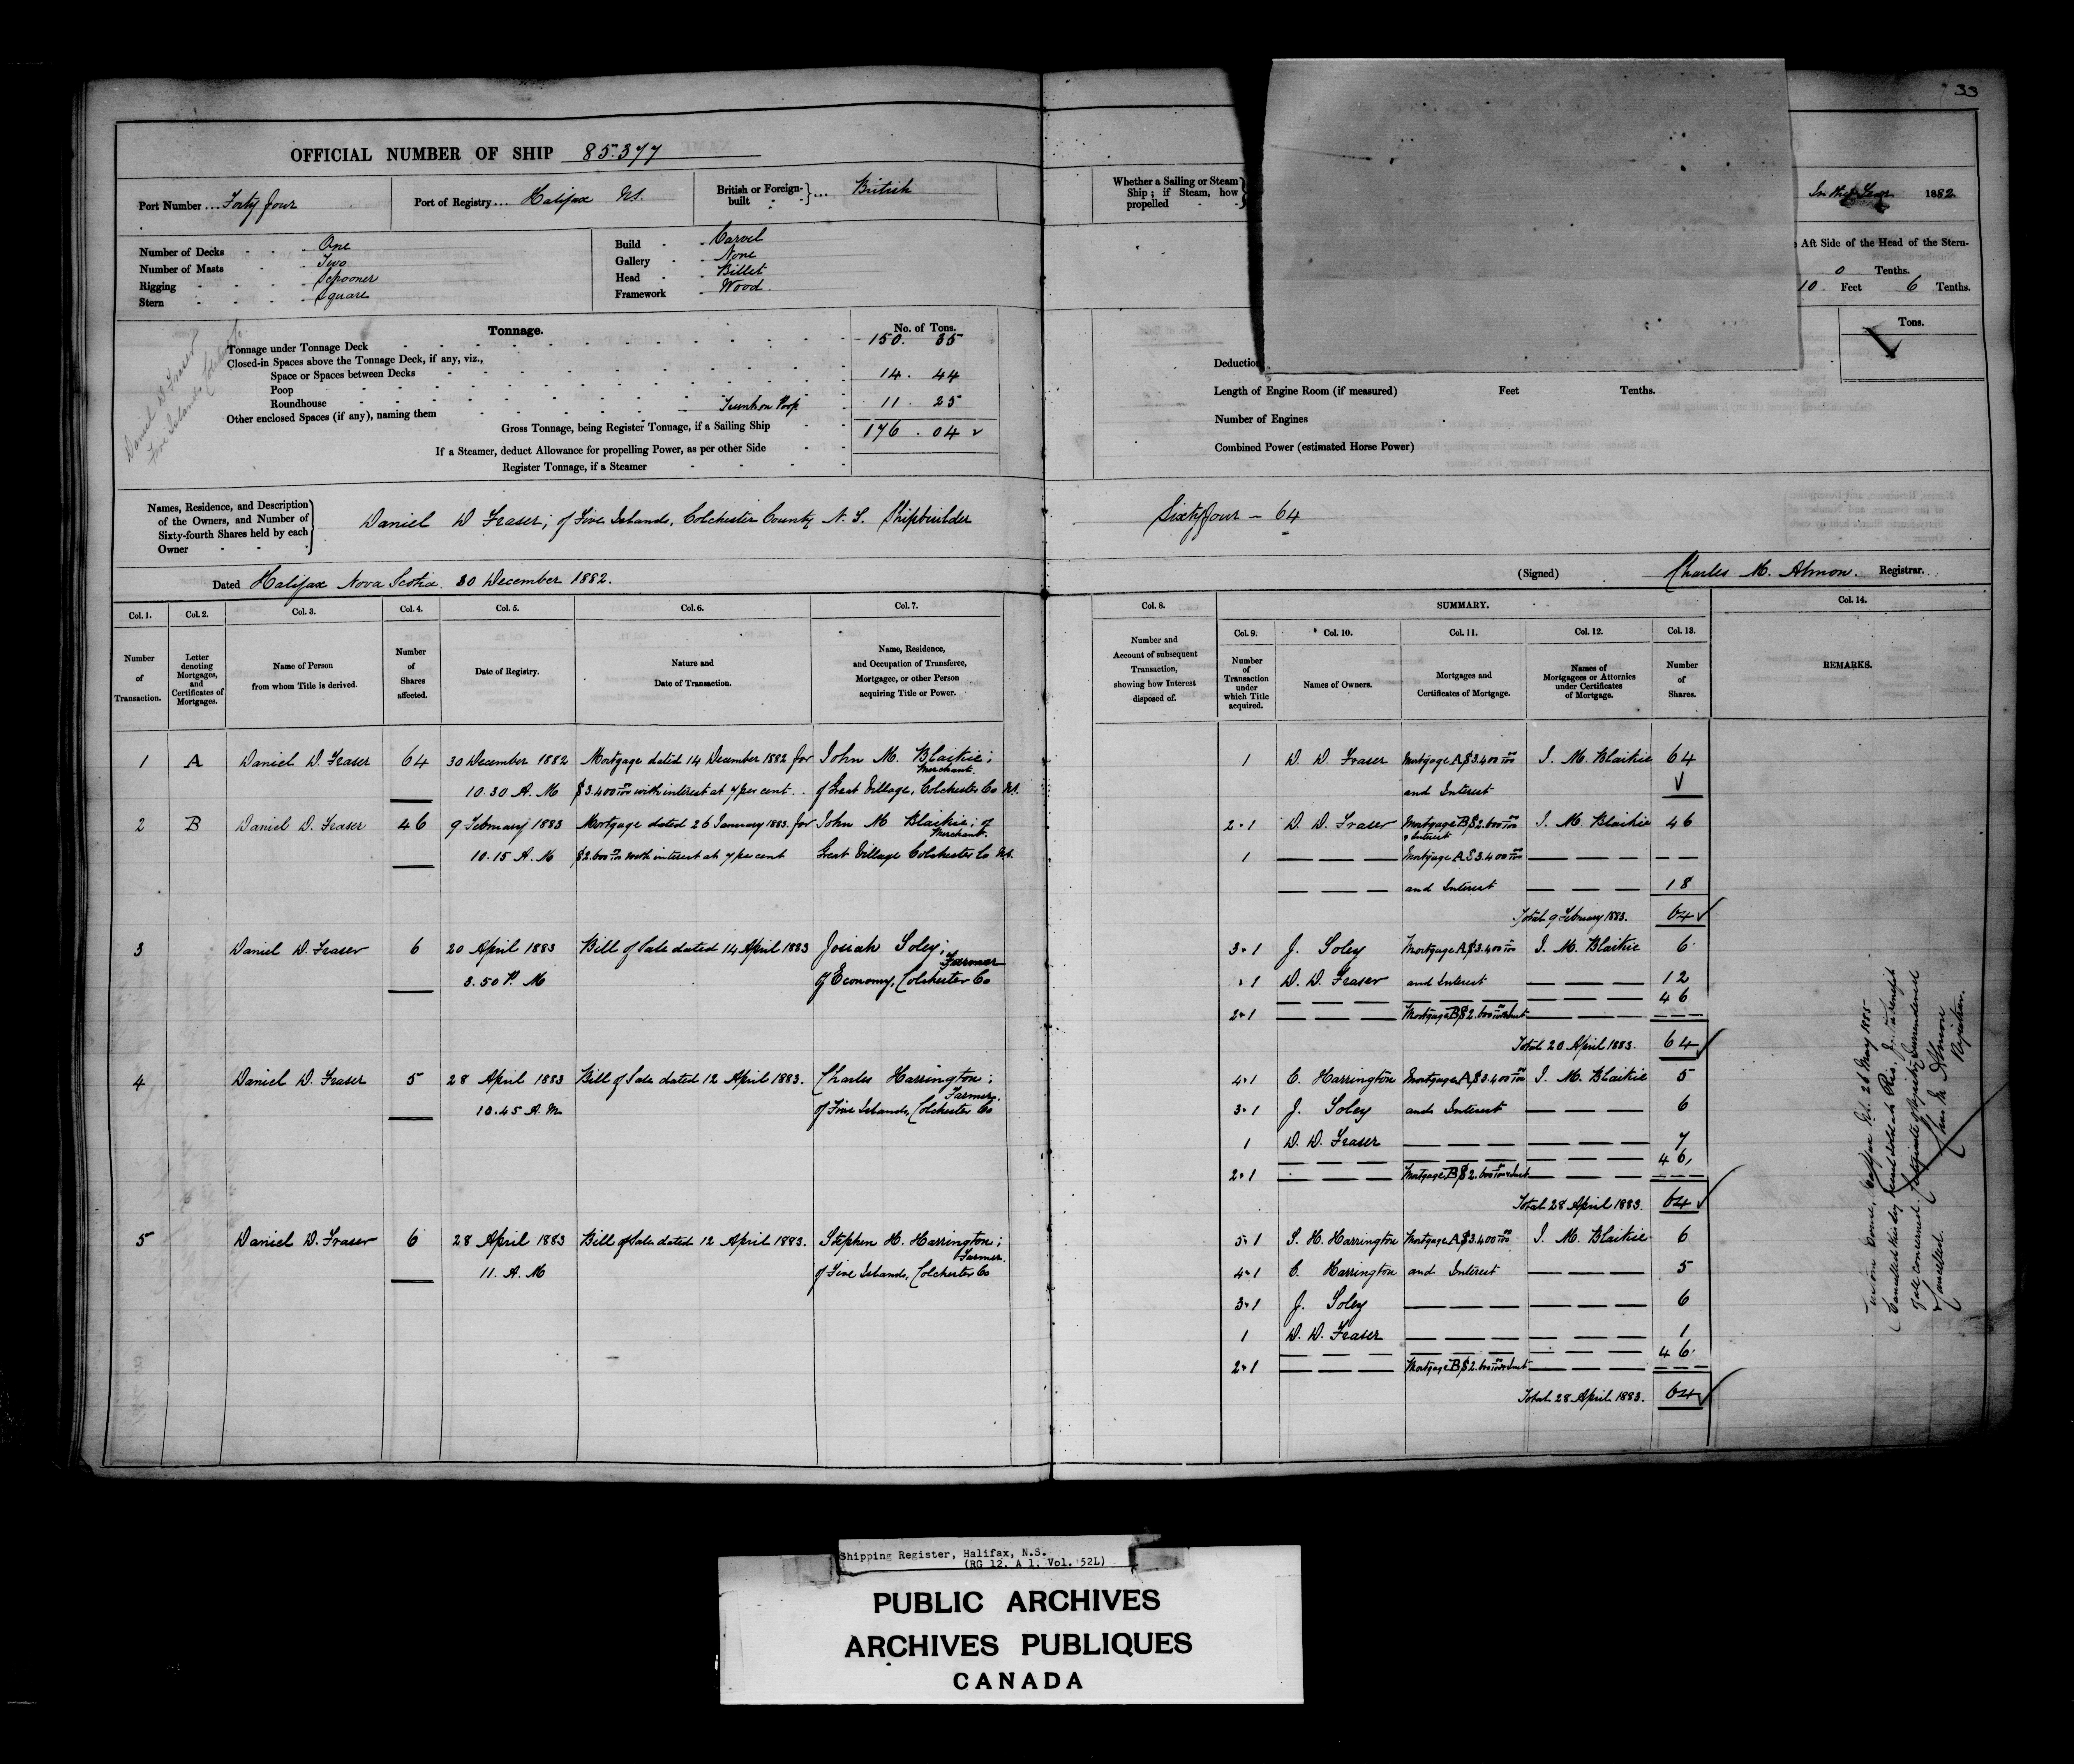 33
OFFICIAL NUMBER OF SHIP 85.377
Port Number ... Forty four
Port of Registry ... Halifax NS.
British or Foreign-built ... British
Whether a Sailing or Steam Ship; if Steam, how propelled
1882
Number of Decks One
Number of Masts Two
Rigging Schooner
Stern Square
Build Carvel
Gallery None
Head Billet
Framework Wood
Aft Side of the Head of the Stern-
0 Tenths.
10 Feet 6 Tenths.
Daniel D Fraser
Five Islands
Tonnage. No. of Tons.
Tonnage under Tonnage Deck 150. 35
Closed-in Spaces above the Tonnage Deck, if any, viz.,
Space or Spaces between Decks 14. 44
Poop
Roundhouse
Other enclosed Spaces (if any), naming them Trunk on Poop 11. 25
Gross Tonnage, being Register Tonnage, if a Sailing Ship 176. 04
If a Steamer, deduct Allowance for propelling Power, as per other Side
Register Tonnage, if a Steamer
Tons.
Deduction
Length of Engine Room (if measured) Feet Tenths.
Number of Engines
Combined Power (estimated Horse Power)
Names, Residence, and Description of the Owners, and Number of Sixty-fourth Shares held by each Owner
Daniel D Fraser; of Five Islands, Colchester County N.S. Shipbuilder
Sixty four - 64
Dated Halifax Nova Scotia. 30 December 1882.
(Signed) Charles M. Almon. Registrar.
Col. 1. Col. 2. Col. 3. Col. 4. Col. 5. Col. 6. Col. 7. Col. 8. SUMMARY. Col. 14.
Col. 9. Col. 10. Col. 11. Col. 12. Col. 13.
Number of Transaction.
Letter denoting Mortgages, and Certificates of Mortgages.
Name of Person from whom Title is derived.
Number of Shares affected.
Date of Registry.
Nature and Date of Transaction.
Name, Residence, and Occupation of Transferee, Mortgagee, or other Person acquiring Title or Power.
Number and Account of subsequent Transaction, showing how Interest disposed of.
Number of Transaction under which Title acquired.
Names of Owners.
Mortgages and Certificates of Mortgage.
Names of Mortgagees or Attornies under Certificates of Mortgage.
Number of Shares.
REMARKS.
1 A Daniel D. Fraser 64 30 December 1882 Mortgage dated 14 December 1882 for John M. Blaikie;
Merchant.
10.30 A. M $3.400 with interest at 7 per cent. of Great Village, Colchester Co NS.
2 B Daniel D. Fraser 46 9 February 1883 Mortgage dated 26 January 1883. for John M Blaikie; of
Merchant.
10.15 A. M $2.600 with interest at 7 per cent Great Village Colchester Co NS.
3 Daniel D. Fraser 6 20 April 1883 Bill of Sale dated 14 April 1883 Josiah Soley;
Farmer
3.50 P. M of Economy, Colchester Co
4 Daniel D. Fraser 5 28 April 1883 Bill of Sale dated 12 April 1883. Charles Harrington;
Farmer.
10.45 A. M. of Five Islands, Colchester Co
5 Daniel D. Fraser 6 28 April 1883 Bill of Sale dated 12 April 1883. Stephen H. Harrington;
Farmer.
11. A. M of Five Islands, Colchester Co
1 D. D. Fraser Mortgage A $3.400 J. M. Blaikie 64
and Interest
2.1 D. D. Fraser Mortgage B $2.600 J. M. Blaikie 46
& Interest
1 Mortgage A $3.400
and Interest 18
Total 9 February 1883. 64
3.1 J. Soley Mortgage A $3.400 J. M. Blaikie 6
1 D. D. Fraser and Interest 12
46
2.1 Mortgage B $2.600
Total 20 April 1883. 64
4.1 C. Harrington Mortgage A $3.400 J. M. Blaikie 5
3.1 J. Soley and Interest 6
1 D. D. Fraser 7
46
2.1 Mortgage B $2.600
Total 28 April 1883. 64
5.1 S. H. Harrington Mortgage A $3.400 J. M. Blaikie 6
4.1 C. Harrington and Interest 5
3.1 J. Soley 6
1 D. D. Fraser 1
46
2.1 Mortgage B $2.600
Total 28 April 1883. 64
26 May 1885
Cancelled this day
all concerned. Certificate of Registry Surrendered
& Cancelled.
Almon
Registrar.
Shipping Register, Halifax, N.S.
(RG 12, A 1, Vol. 52L)
PUBLIC ARCHIVES
ARCHIVES PUBLIQUES
CANADA